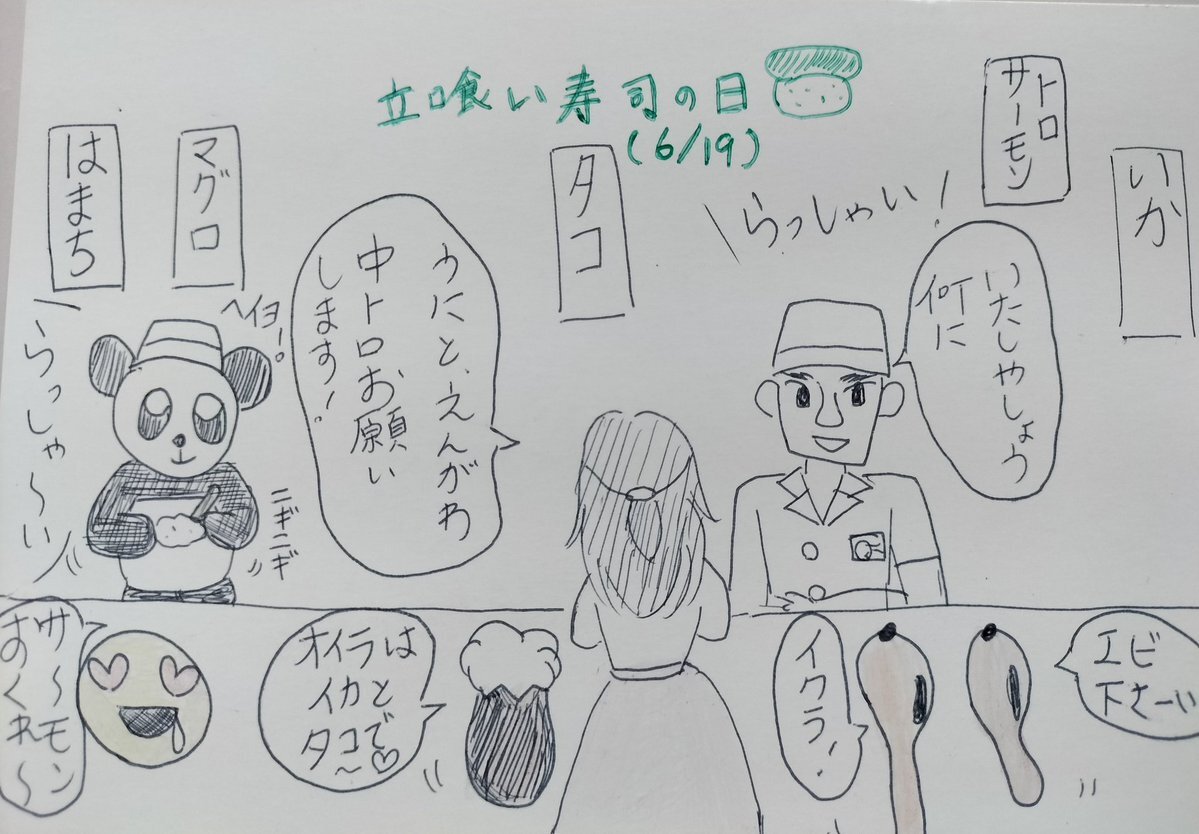 立喰い寿司の日
(6/19)
はまち
マグロ
タコ
トロ
サーモン
いか
らっしゃい!
何に
いたしやしょう
うにと、えんがわ
中トロお願い
します!
ヘイヨー。
らっしゃ~い
ニギニギ
サ~モン
おくれ~
オイラは
イカと
タコで~♡
イクラ!
エビ
下さーい